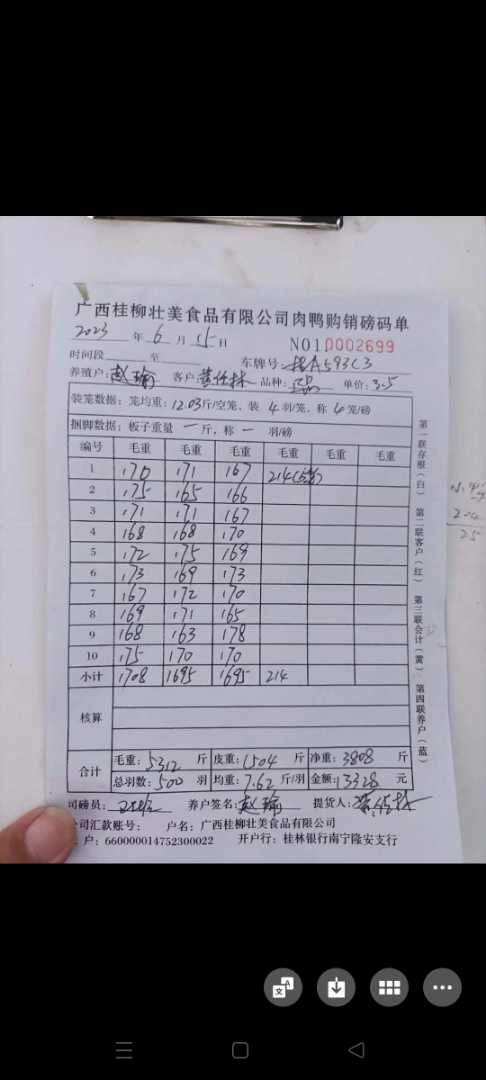 广西桂柳壮美食品有限公司肉鸭购销磅码单
2023 年 6 月 15 日 NO10002699
时间段 至 车牌号: 桂A593C3
养殖户: 赵瑜 客户: 品种: 正品 单价: 3.5
装笼数据: 笼均重: 12.03斤/空笼, 装 4 羽/笼, 称 笼/磅
捆脚数据: 板子重量 一 斤, 称 一 羽/磅
编号 毛重 毛重 毛重 毛重 毛重 毛重
1 170 171 167 214(5笼)
2 175 165 166
3 171 171 167
4 168 168 170
5 172 175 169
6 173 169 173
7 167 172 170
8 169 171 165
9 168 163 178
10 175 170 170
小计 1708 1695 1695 214
核算
合计 毛重: 5312 斤 皮重: 1504 斤 净重: 3808 斤
总羽数: 500 羽 均重: 7.62 斤/羽 金额: 13328 元
司磅员: 养户签名: 赵瑜 提货人:
公司汇款账号: 户名: 广西桂柳壮美食品有限公司
户: 660000014752300022 开户行: 桂林银行南宁隆安支行
第一联存根(白) 第二联客户(红) 第三联会计(黄) 第四联养户(蓝)
25